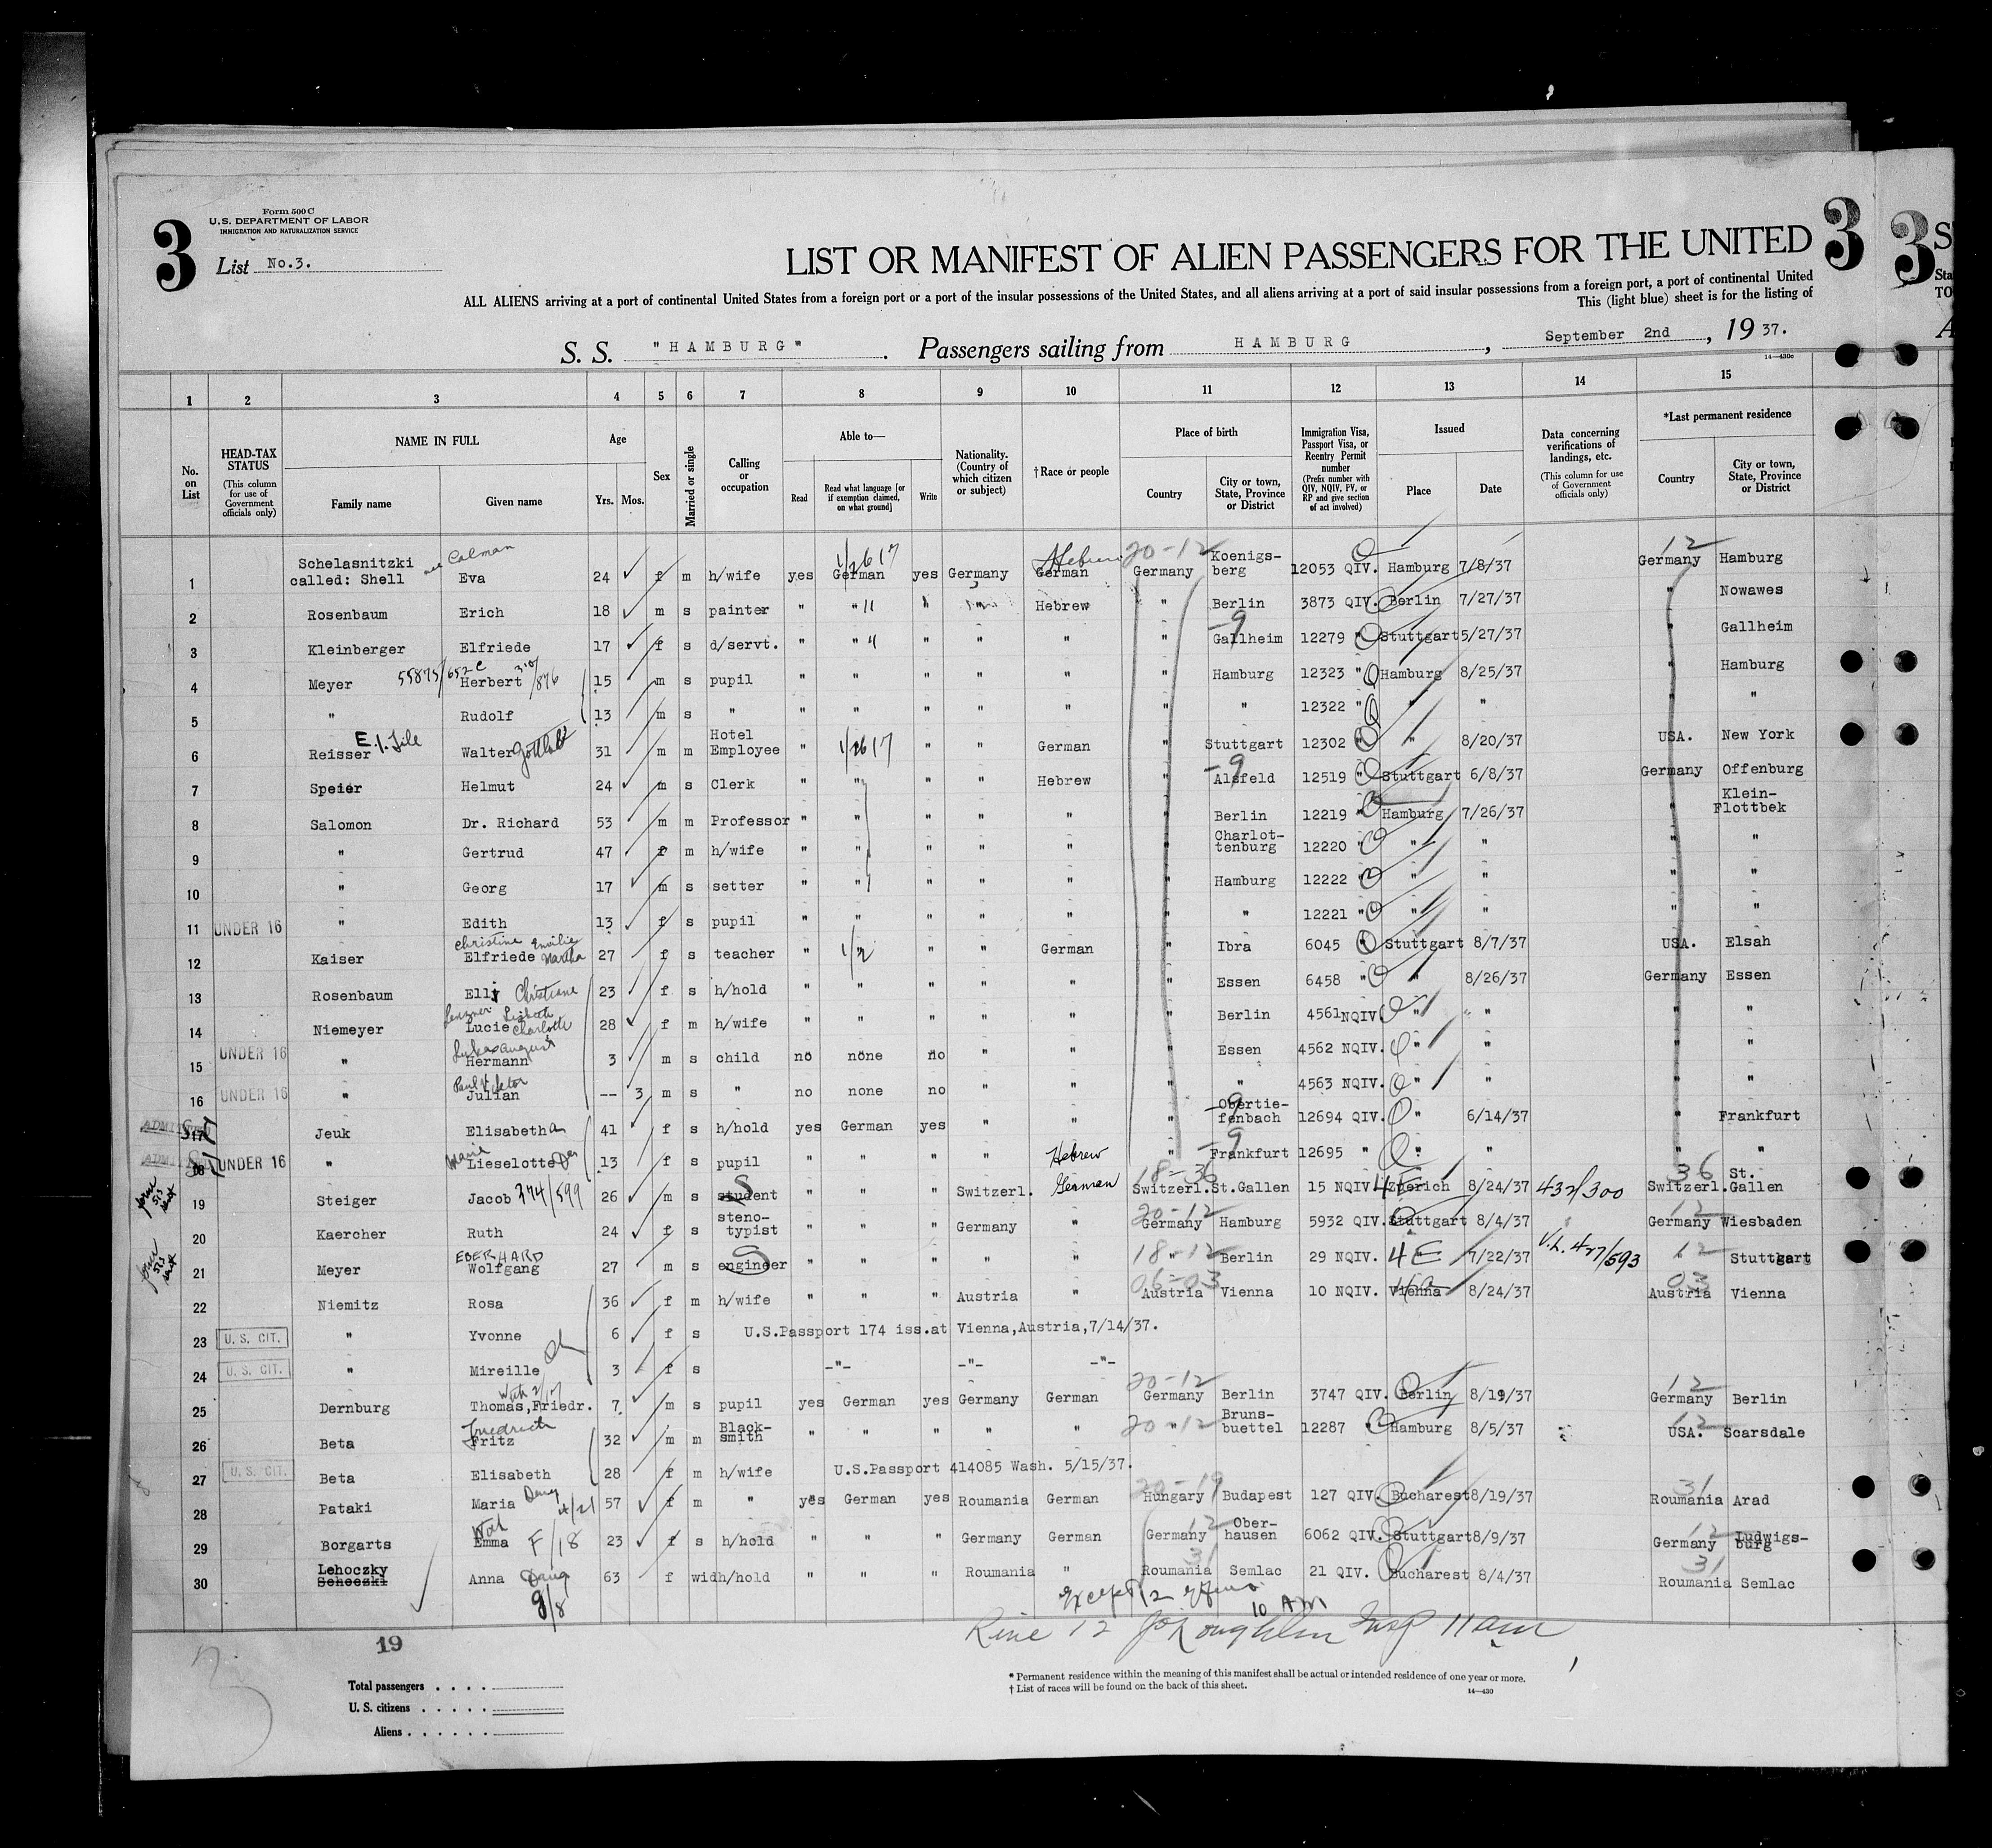 3
Form 500 C
U.S. DEPARTMENT OF LABOR
IMMIGRATION AND NATURALIZATION SERVICE
List No.3.
3
3
LIST OR MANIFEST OF ALIEN PASSENGERS FOR THE UNITED
ALL ALIENS arriving at a port of continental United States from a foreign port or a port of the insular possessions of the United States, and all aliens arriving at a port of said insular possessions from a foreign port, a port of continental United
This (light blue) sheet is for the listing of
S. S. "HAMBURG". Passengers sailing from HAMBURG, September 2nd, 19 37.
14—430c
1 2 3 4 5 6 7 8 9 10 11 12 13 14 15
No. on List
HEAD-TAX STATUS (This column for use of Government officials only)
NAME IN FULL Family name Given name
Age Yrs. Mos.
Sex
Married or single
Calling or occupation
Able to— Read Read what language [or if exemption claimed, on what ground] Write
Nationality. (Country of which citizen or subject)
†Race or people
Place of birth Country City or town, State, Province or District
Immigration Visa, Passport Visa, or Reentry Permit number (Prefix number with QIV, NQIV, PV, or RP and give section of act involved)
Issued Place Date
Data concerning verifications of landings, etc. (This column for use of Government officials only)
*Last permanent residence Country City or town, State, Province or District
1 Schelasnitzki called: Shell Calman Eva 24 f m h/wife yes German yes Germany German Hebrew 20-12 Germany Koenigs-berg 12053 QIV. Hamburg 7/8/37 12 Germany Hamburg
2 Rosenbaum Erich 18 m s painter " " " " Hebrew " Berlin 3873 QIV. Berlin 7/27/37 " Nowawes
3 Kleinberger Elfriede 17 f s d/servt. " " " " " " -9 Gallheim 12279 " Stuttgart 5/27/37 " Gallheim
4 Meyer 55875/652 Herbert 15 m s pupil " " " " " " Hamburg 12323 " Hamburg 8/25/37 " Hamburg
5 " Rudolf 13 m s " " " " " " " " 12322 " " " " "
6 Reisser Walter Gottlob 31 m m Hotel Employee " 1/2617 " " German " Stuttgart 12302 " " 8/20/37 USA. New York
7 Speier Helmut 24 m s Clerk " " " " Hebrew " -9 Alsfeld 12519 " Stuttgart 6/8/37 Germany Offenburg
8 Salomon Dr. Richard 53 m m Professor " " " " " " Berlin 12219 " Hamburg 7/26/37 " Klein-Flottbek
9 " Gertrud 47 f m h/wife " " " " " " Charlot-tenburg 12220 " " " " "
10 " Georg 17 m s setter " " " " " " Hamburg 12222 " " " " "
11 UNDER 16 " Edith 13 f s pupil " " " " " " " 12221 " " " " "
12 Kaiser Christine Emilie Elfriede Martha 27 f s teacher " 1/2 " " German " Ibra 6045 " Stuttgart 8/7/37 USA. Elsah
13 Rosenbaum Elly Christiane 23 f s h/hold " " " " " " Essen 6458 " " 8/26/37 Germany Essen
14 Niemeyer Lucie Charlotte 28 f m h/wife " " " " " " Berlin 4561 NQIV. " " " "
15 UNDER 16 " August Hermann 3 m s child no none no " " " Essen 4562 NQIV. " " " "
16 UNDER 16 " Paul Viktor Julian -- 3 m s " no none no " " " " 4563 NQIV. " " " "
17 Jeuk Elisabetha 41 f s h/hold yes German yes " " " -9 Obertie-fenbach 12694 QIV. " 6/14/37 " Frankfurt
18 UNDER 16 " Marie Lieselotte 13 f s pupil " " " " Hebrew " -9 Frankfurt 12695 " " " " "
19 Steiger Jacob 274/599 26 m s student S " " " Switzerl. German 18-36 Switzerl. St.Gallen 15 NQIV 4E Zuerich 8/24/37 432/300 36 Switzerl. St. Gallen
20 Kaercher Ruth 24 f s steno-typist " " " Germany " 20-12 Germany Hamburg 5932 QIV. Stuttgart 8/4/37 12 Germany Wiesbaden
21 Meyer EBERHARD Wolfgang 27 m s engineer S " " " " " 18-12 " Berlin 29 NQIV. 4E 7/22/37 V.L. 427/593 12 Stuttgart
22 Niemitz Rosa 36 f m h/wife " " " Austria " 06-03 Austria Vienna 10 NQIV. Vienna 8/24/37 03 Austria Vienna
23 U. S. CIT. " Yvonne 6 f s U.S.Passport 174 iss.at Vienna,Austria,7/14/37.
24 U. S. CIT. " Mireille 3 f s -"- -"- -"-
25 Dernburg Thomas,Friedr. 7 m s pupil yes German yes Germany German 20-12 Germany Berlin 3747 QIV. Berlin 8/19/37 12 Germany Berlin
26 Beta Friedrich Fritz 32 m m Black-smith " " " " " 20-12 " Bruns-buettel 12287 " Hamburg 8/5/37 12 USA. Scarsdale
27 U. S. CIT. Beta Elisabeth 28 f m h/wife U.S.Passport 414085 Wash. 5/15/37.
28 Pataki Maria 57 f m " yes German yes Roumania German 20-19 Hungary Budapest 127 QIV. Bucharest 8/19/37 31 Roumania Arad
29 Borgarts Emma F/18 23 f s h/hold " " " Germany German 12 Germany Ober-hausen 6062 QIV. Stuttgart 8/9/37 12 Germany Ludwigs-burg
30 Lehoczky Scheezki Anna 9/8 63 f wid h/hold " " " Roumania " 31 Roumania Semlac 21 QIV. Bucharest 8/4/37 31 Roumania Semlac
10 AM
Insp 11 am
19
Total passengers
U. S. citizens
Aliens
* Permanent residence within the meaning of this manifest shall be actual or intended residence of one year or more.
† List of races will be found on the back of this sheet.
14—430